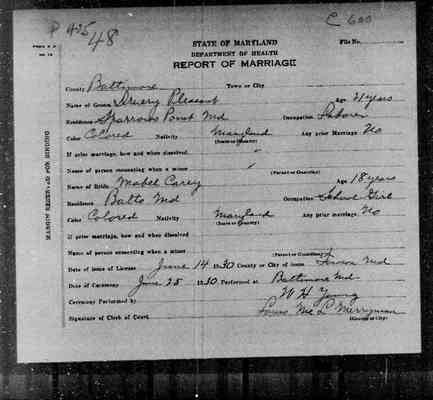 C 600
P 425
48
STATE OF MARYLAND
File No.
DEPARTMENT OF HEALTH
REPORT OF MARRIAGE
County Baltimore Town or City
Name of Groom Drury Pleasant Age 21 years
Residence Sparrows Point Md Occupation Laborer
Color Colored Nativity Maryland Any prior Marriage No
(State or County)
If prior marriage, how and when dissolved.
Name of person consenting when a minor
(Parent or Guardian)
Name of Bride Mabel Carey Age 18 years
Residence Balto Md Occupation School Girl
Color Colored Nativity Maryland Any prior marriage No
(State or County)
If prior marriage, how and when dissolved
Name of person consenting when a minor
(Parent or Guardian)
Date of issue of License June 14 1930 County or City of issue Towson Md
Date of Ceremony June 25 1930 Performed at Baltimore Md
Ceremony Performed by W H Young
Signature of Clerk of Court Louis McL Merryman
(County or City)
MARGIN RESERVED FOR BINDING